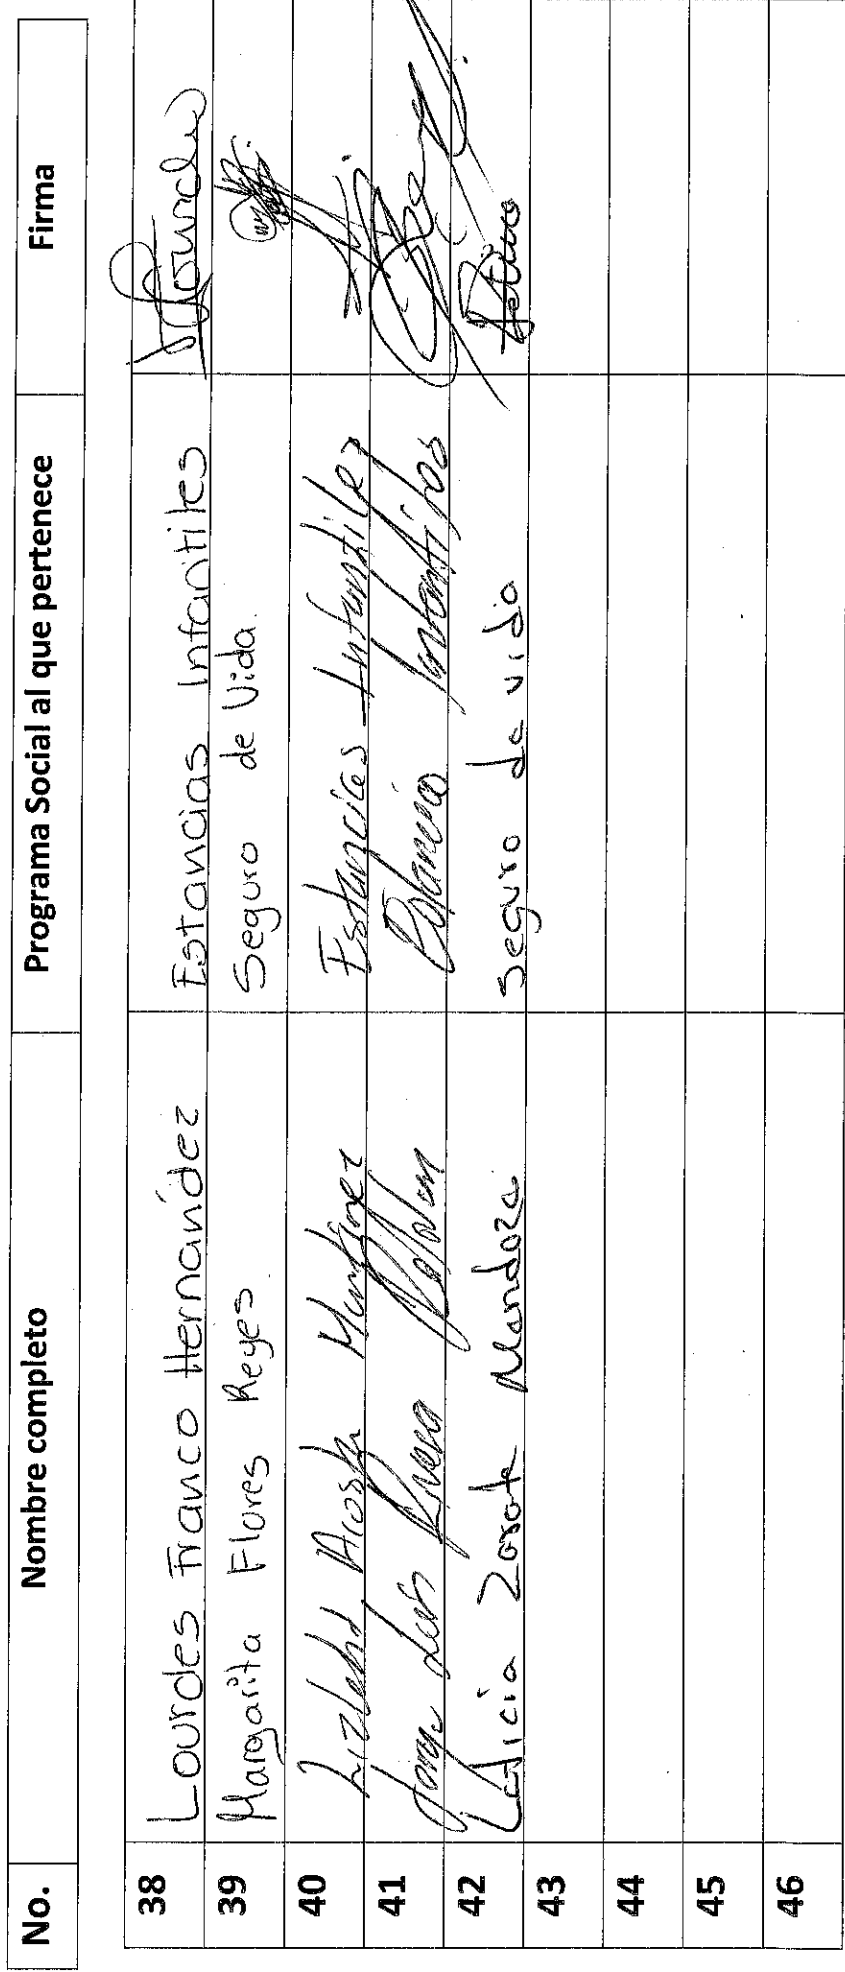 No. Nombre completo Programa Social al que pertenece Firma
38 Lourdes Franco Hernández Estancias Infantiles Lourdes
39 Margarita Flores Reyes. Seguro de Vida.
40 Acosta Martínez Estancias Infantiles
41 Jorge Luis Rivera Roldan Estancia Infantiles
42 Leticia Zarate Mendoza. Seguro de vida
43
44
45
46